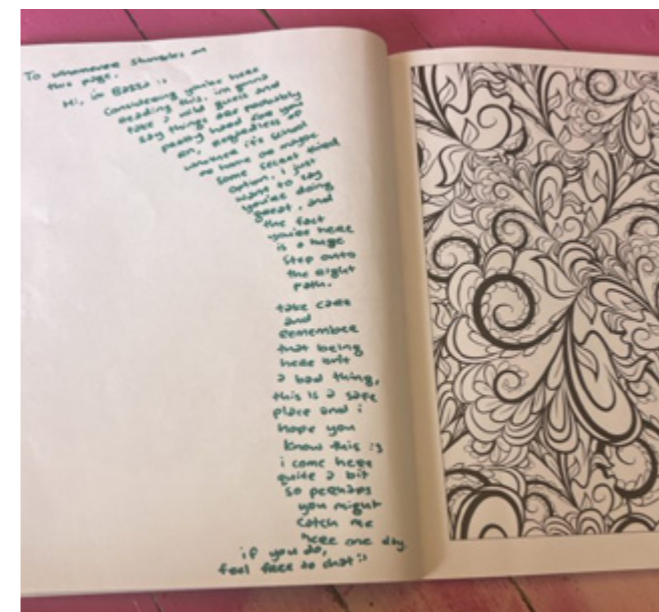 To whomever stumbles on
this page.
Hi, im Bazza :)
Considering you're here
reading this, im gonna
take a wild guess and
say things are probably
pretty hard for you
rn, regardless of
whether it's school
or home or maybe
some secret third
option, i just
want to say
you're doing
great, and
the fact
you're here
is a huge
step onto
the right
path.
take care
and
remember
that being
here isn't
a bad thing,
this is a safe
place and i
hope you
know this :3
i come here
quite a bit
so perhaps
you might
catch me
here one day.
if you do,
feel free to chat :)